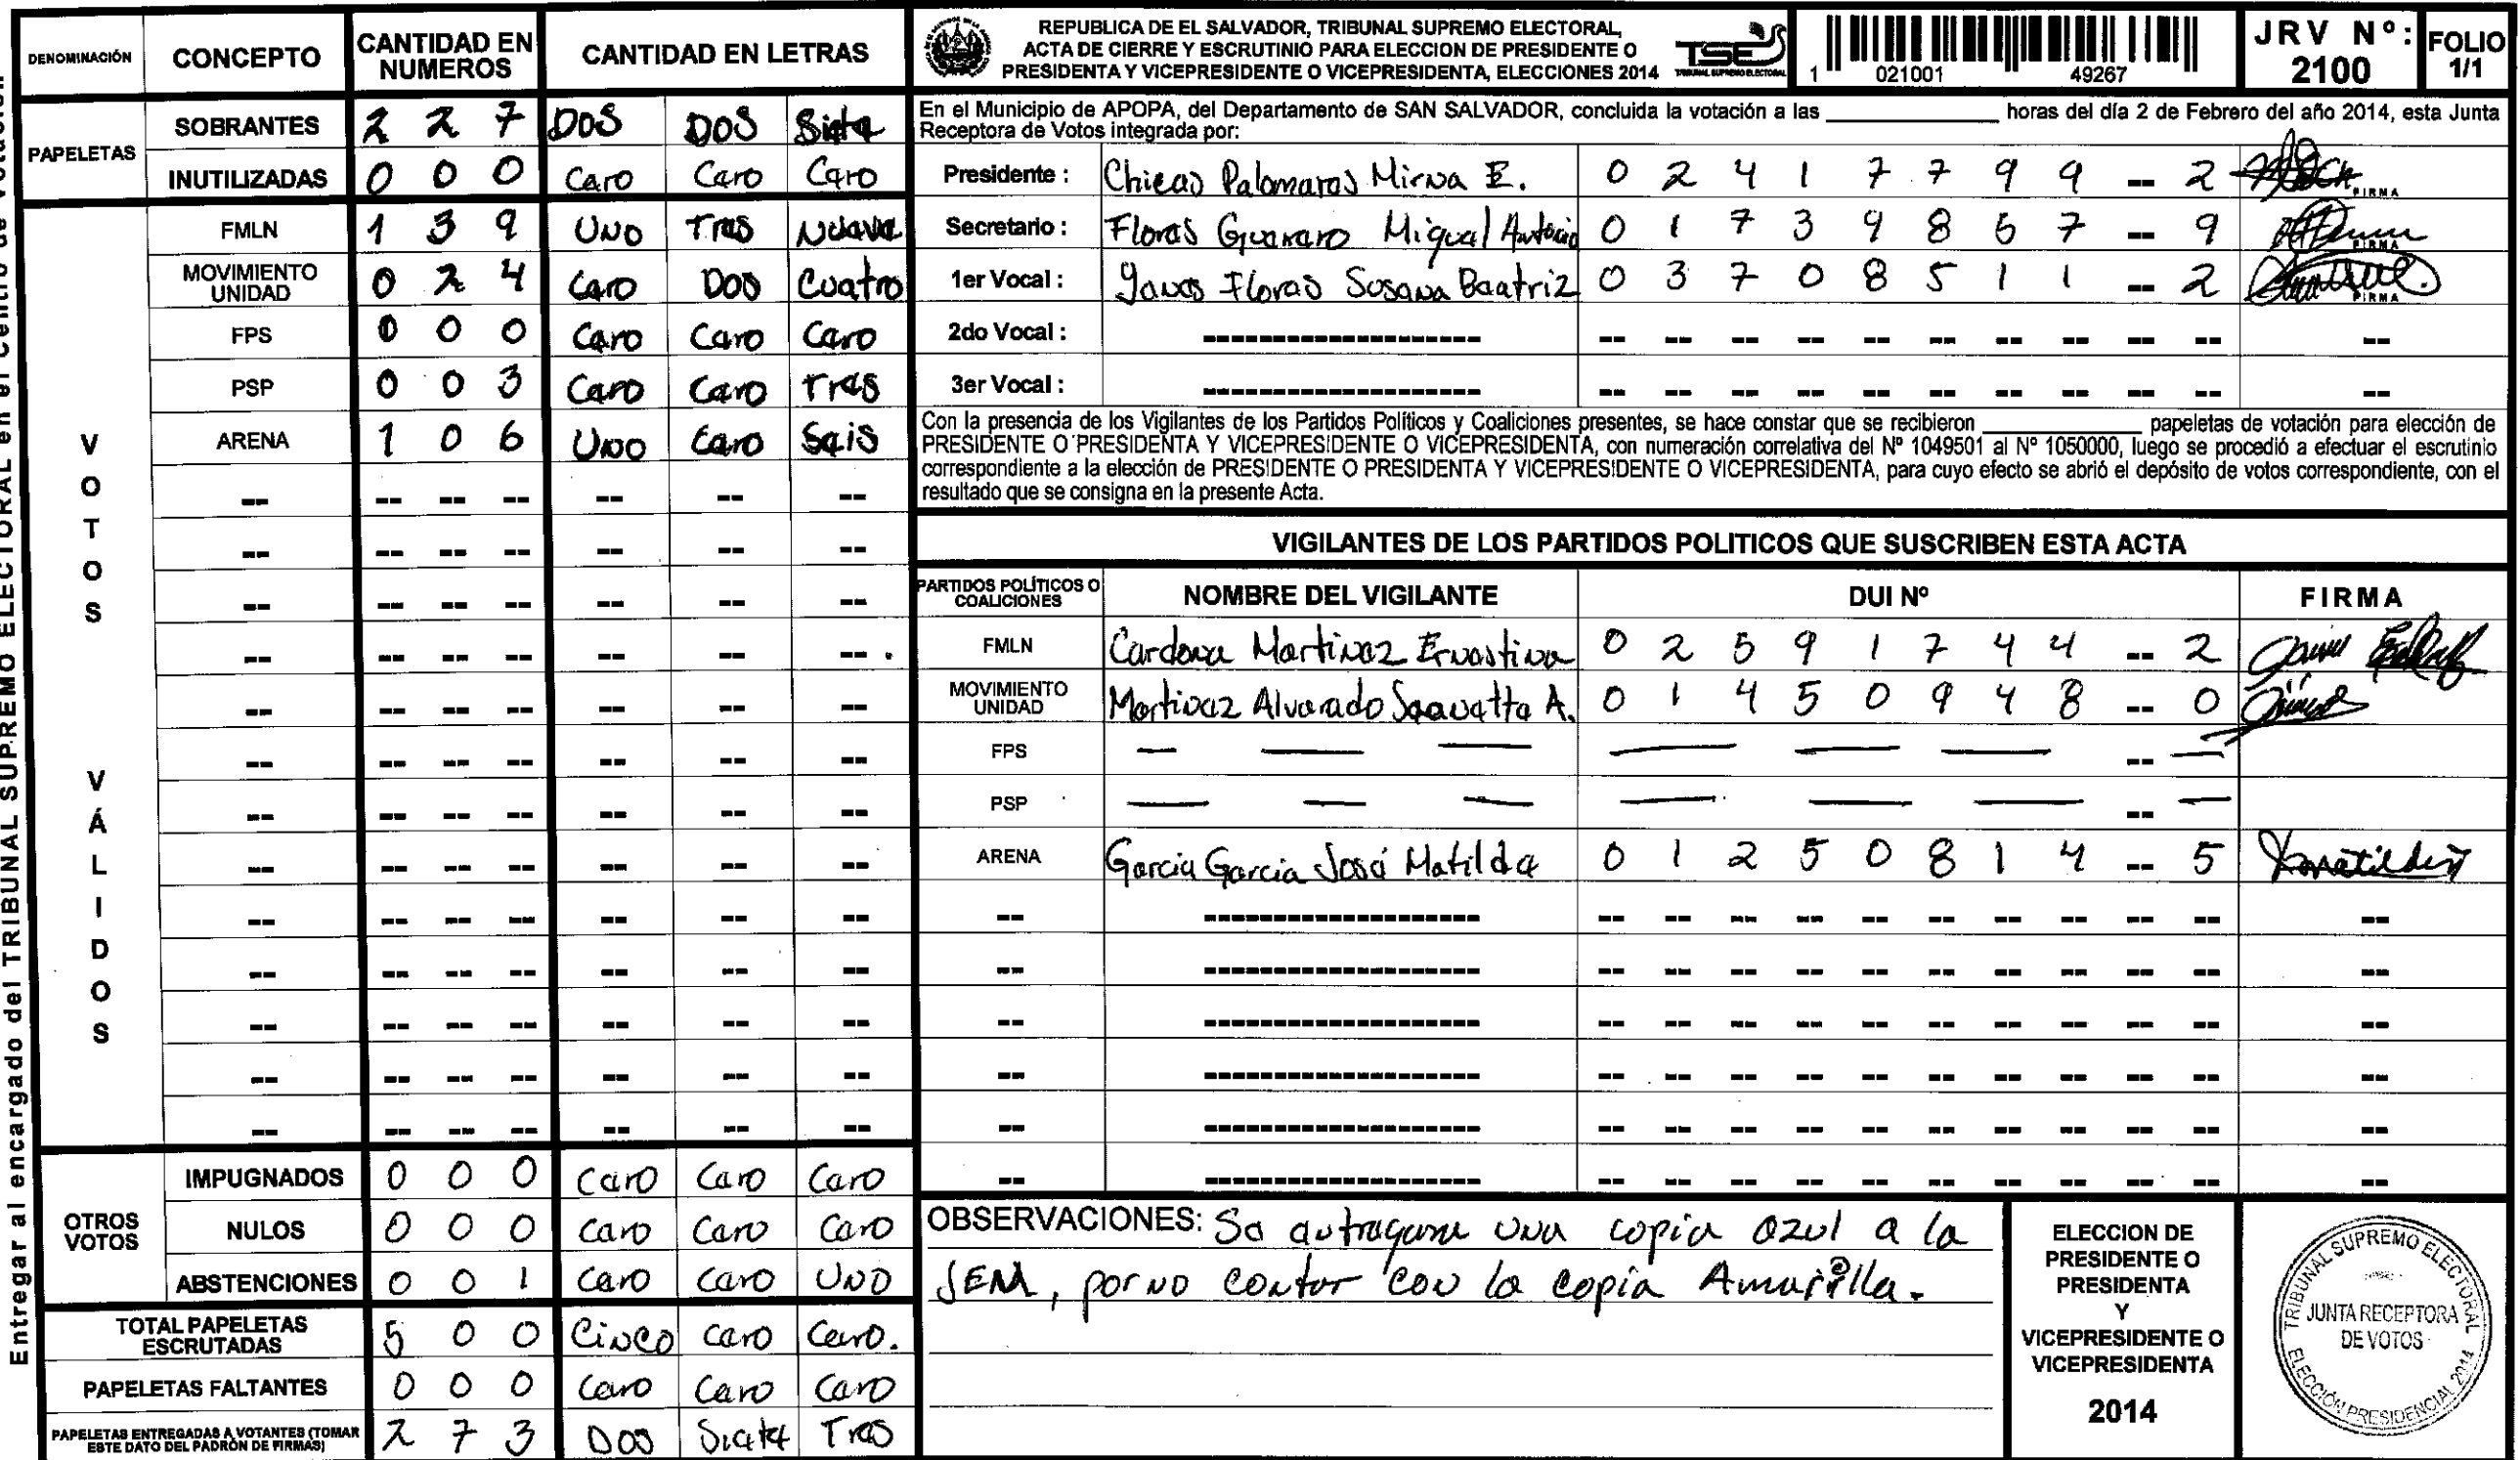 Entregar al encargado del TRIBUNAL SUPREMO ELECTORAL en el Centro de Votación
DENOMINACIÓN CONCEPTO CANTIDAD EN NUMEROS CANTIDAD EN LETRAS
PAPELETAS
SOBRANTES 2 2 7 DOS DOS Siete
INUTILIZADAS 0 0 0 Cero Cero Cero
VOTOS VÁLIDOS
FMLN 1 3 9 UNO Tres Nueve
MOVIMIENTO UNIDAD 0 2 4 Cero Dos Cuatro
FPS 0 0 0 Cero Cero Cero
PSP 0 0 3 Cero Cero Tres
ARENA 1 0 6 UNO Cero Seis
OTROS VOTOS
IMPUGNADOS 0 0 0 Cero Cero Cero
NULOS 0 0 0 Cero Cero Cero
ABSTENCIONES 0 0 1 Cero Cero UNO
TOTAL PAPELETAS ESCRUTADAS 5 0 0 Cinco Cero Cero.
PAPELETAS FALTANTES 0 0 0 Cero Cero Cero
PAPELETAS ENTREGADAS A VOTANTES (TOMAR ESTE DATO DEL PADRÓN DE FIRMAS) 2 7 3 DOS Siete Tres
REPUBLICA DE EL SALVADOR, TRIBUNAL SUPREMO ELECTORAL,
ACTA DE CIERRE Y ESCRUTINIO PARA ELECCION DE PRESIDENTE O
PRESIDENTA Y VICEPRESIDENTE O VICEPRESIDENTA, ELECCIONES 2014
TSE
TRIBUNAL SUPREMO ELECTORAL
1 021001 49267
JRV Nº: 2100
FOLIO 1/1
En el Municipio de APOPA, del Departamento de SAN SALVADOR, concluida la votación a las ____ horas del día 2 de Febrero del año 2014, esta Junta
Receptora de Votos integrada por:
Presidente : Chicas Palomares Mirna E. 0 2 4 1 7 7 9 9 -- 2 FIRMA
Secretario : Flores Guerrero Miguel Antonio 0 1 7 3 9 8 6 7 -- 9 FIRMA
1er Vocal : Yanes Flores Susana Beatriz 0 3 7 0 8 5 1 1 -- 2 FIRMA
2do Vocal :
3er Vocal :
Con la presencia de los Vigilantes de los Partidos Políticos y Coaliciones presentes, se hace constar que se recibieron ____ papeletas de votación para elección de
PRESIDENTE O PRESIDENTA Y VICEPRESIDENTE O VICEPRESIDENTA, con numeración correlativa del Nº 1049501 al Nº 1050000, luego se procedió a efectuar el escrutinio
correspondiente a la elección de PRESIDENTE O PRESIDENTA Y VICEPRESIDENTE O VICEPRESIDENTA, para cuyo efecto se abrió el depósito de votos correspondiente, con el
resultado que se consigna en la presente Acta.
VIGILANTES DE LOS PARTIDOS POLITICOS QUE SUSCRIBEN ESTA ACTA
PARTIDOS POLÍTICOS O COALICIONES NOMBRE DEL VIGILANTE DUI Nº FIRMA
FMLN Cardona Martinez Ernestina 0 2 5 9 1 7 4 4 -- 2
MOVIMIENTO UNIDAD Martinez Alvarado Jeanette A. 0 1 4 5 0 9 4 8 -- 0
FPS
PSP
ARENA Garcia Garcia José Matilde 0 1 2 5 0 8 1 4 -- 5
OBSERVACIONES: Se entregara una copia azul a la
JEM, por no contar con la copia Amarilla.
ELECCION DE
PRESIDENTE O
PRESIDENTA
Y
VICEPRESIDENTE O
VICEPRESIDENTA
2014
TRIBUNAL SUPREMO ELECTORAL
JUNTA RECEPTORA
DE VOTOS
ELECCIÓN PRESIDENCIAL 2014